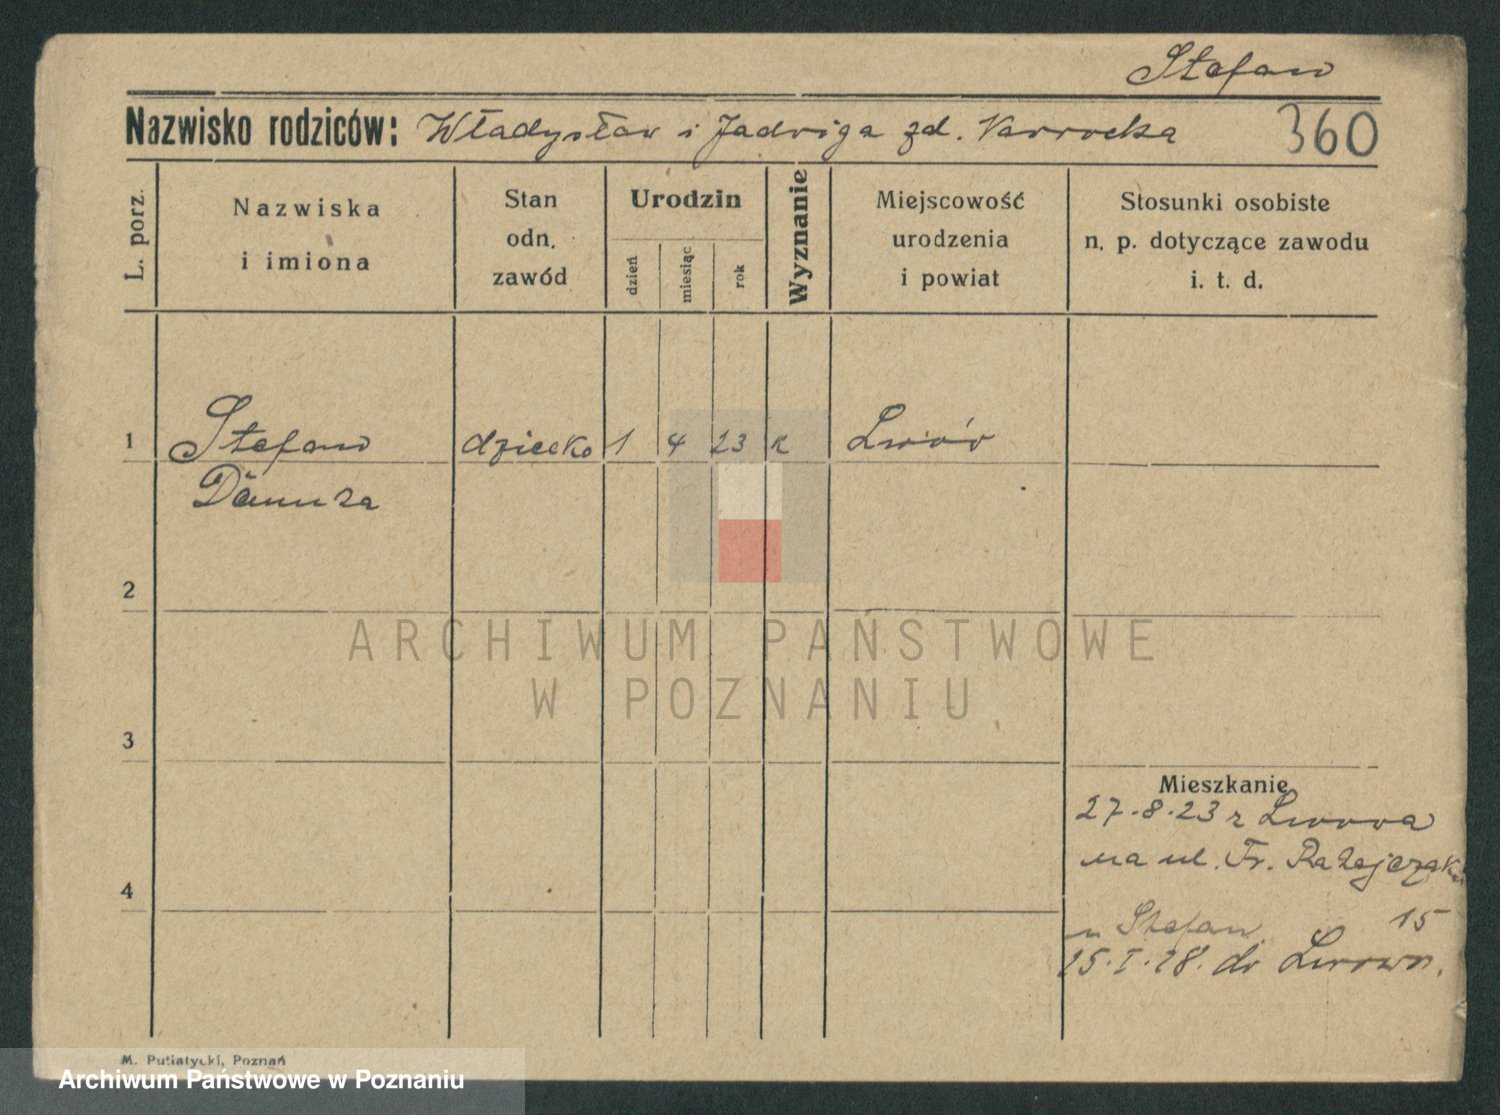 Stefan
Nazwisko rodziców: Władysław i Jadwiga zd. Nawrocka
360
L. porz.
Nazwiska
i imiona
Stan
odn.
zawód
Urodzin
dzień
miesiąc
rok
Wyznanie
Miejscowość
urodzenia
i powiat
Stosunki osobiste
n. p. dotyczące zawodu
i. t. d.
1 Stefan dziecko 1 4 23 k Lwów
Danuta
2
3
4
ARCHIWUM PAŃSTWOWE
W POZNANIU
Mieszkanie
27.8.23 z Lwowa
na ul. Fr. Ratajczaka
15
u Stefan
25.I.28. do Lwowa.
M. Putiatycki, Poznań
Archiwum Państwowe w Poznaniu